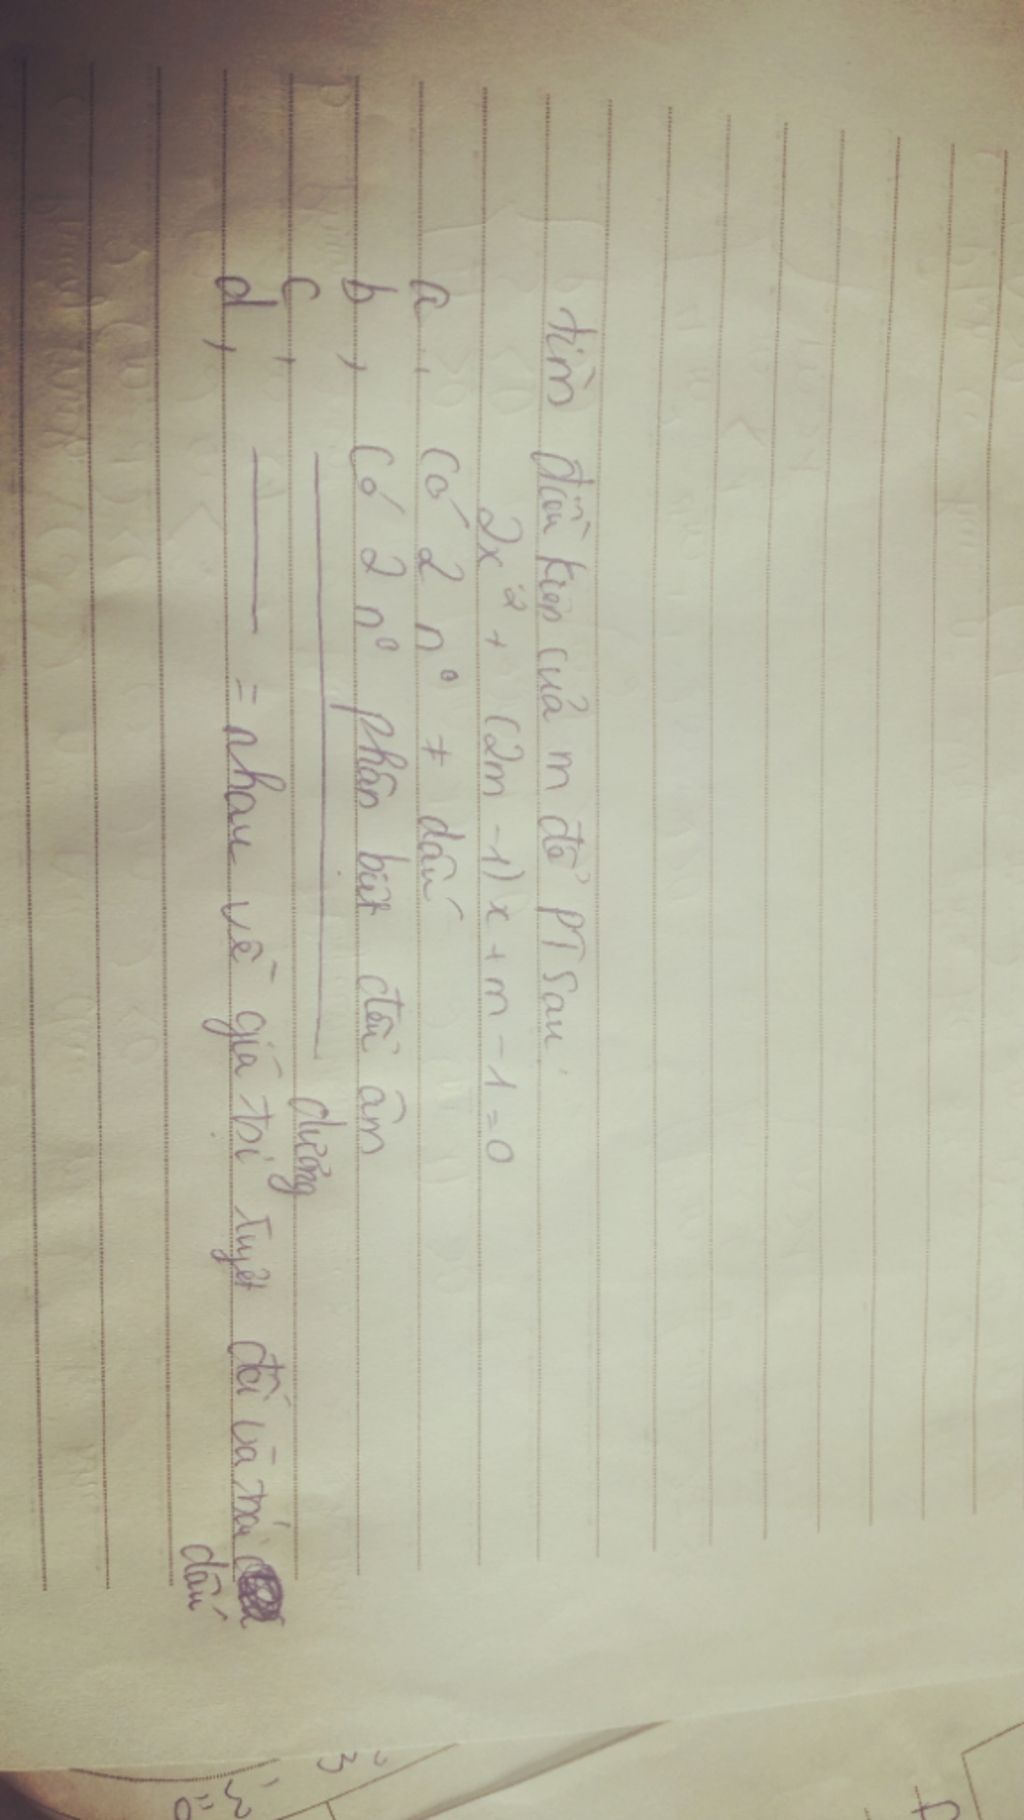 tìm điều kiện của m để PT sau:
2x² + (2m - 1)x + m - 1 = 0
a, Có 2 n⁰ ≠ dấu
b, Có 2 n⁰ phân biệt đều âm
c, ———————— dương
d, ——— = nhau về giá trị tuyệt đối và trái
dấu